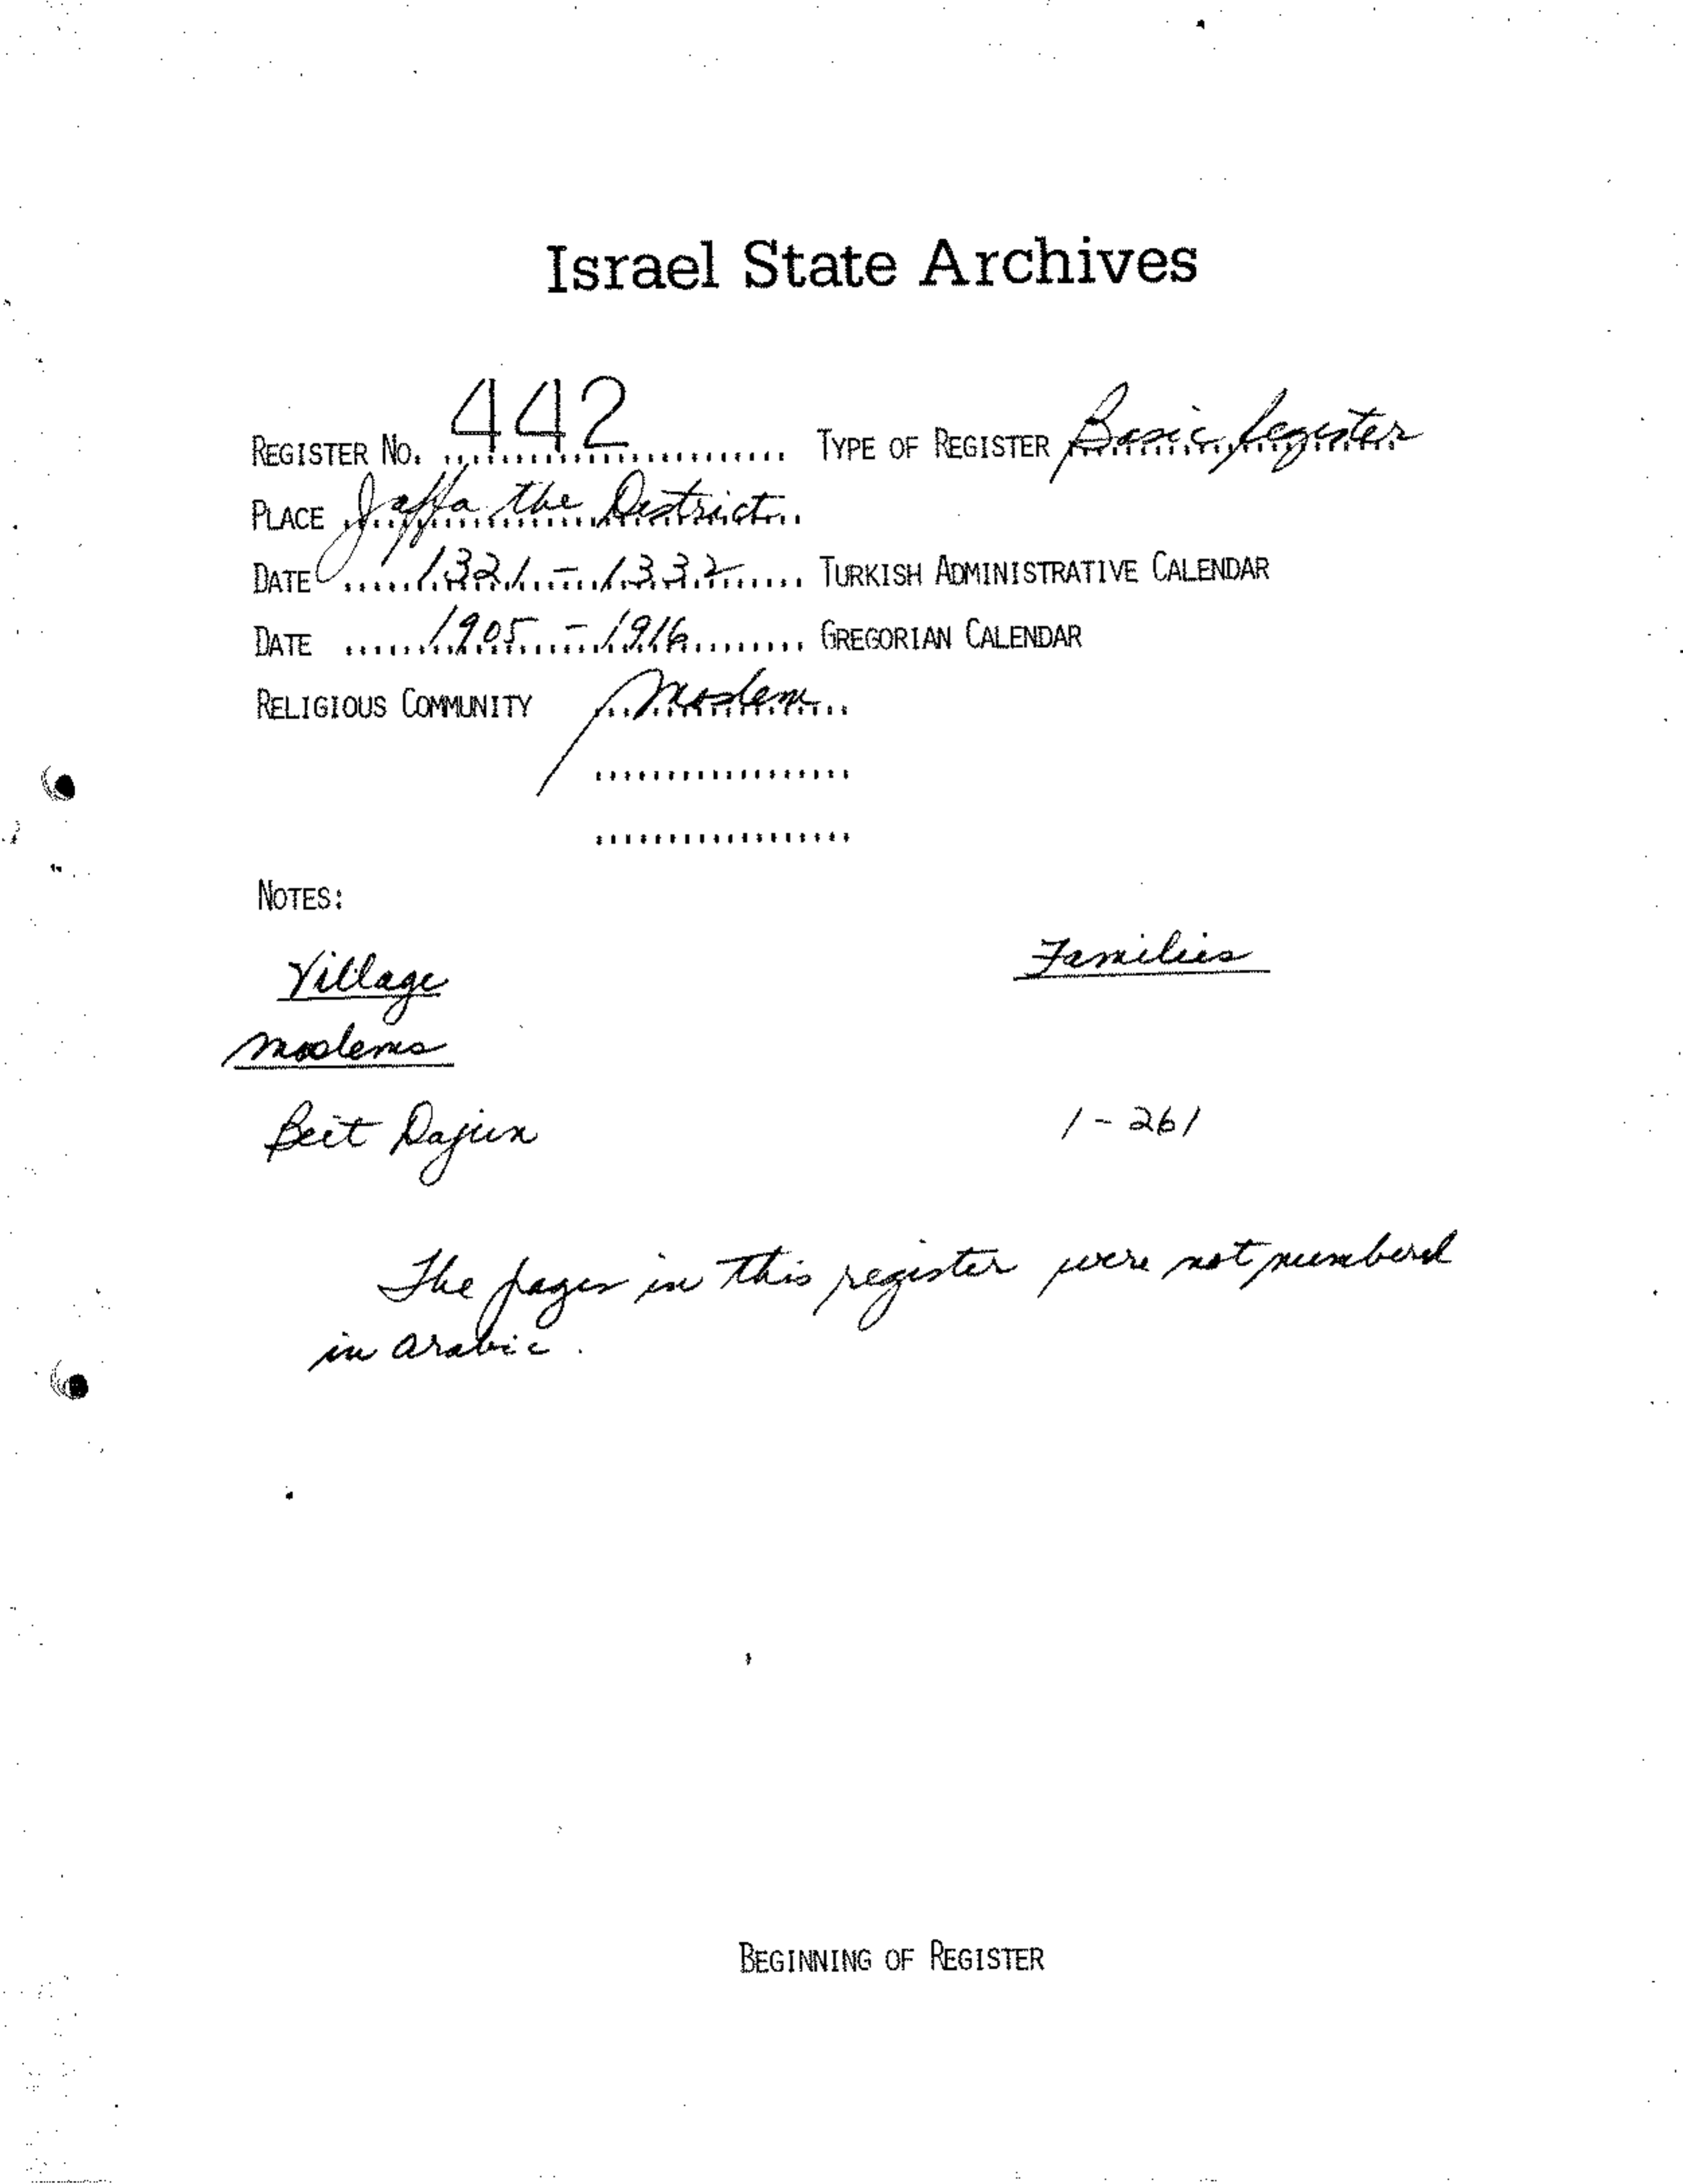 Israel State Archives
REGISTER NO. 442 TYPE OF REGISTER Basic Register
PLACE Jaffa the District
DATE 1321 - 1332 TURKISH ADMINISTRATIVE CALENDAR
DATE 1905 - 1916 GREGORIAN CALENDAR
RELIGIOUS COMMUNITY Moslem
NOTES:
Village Families
Moslems
Beit Dajun 1 - 261
The pages in this register were not numberd
in arabic.
BEGINNING OF REGISTER